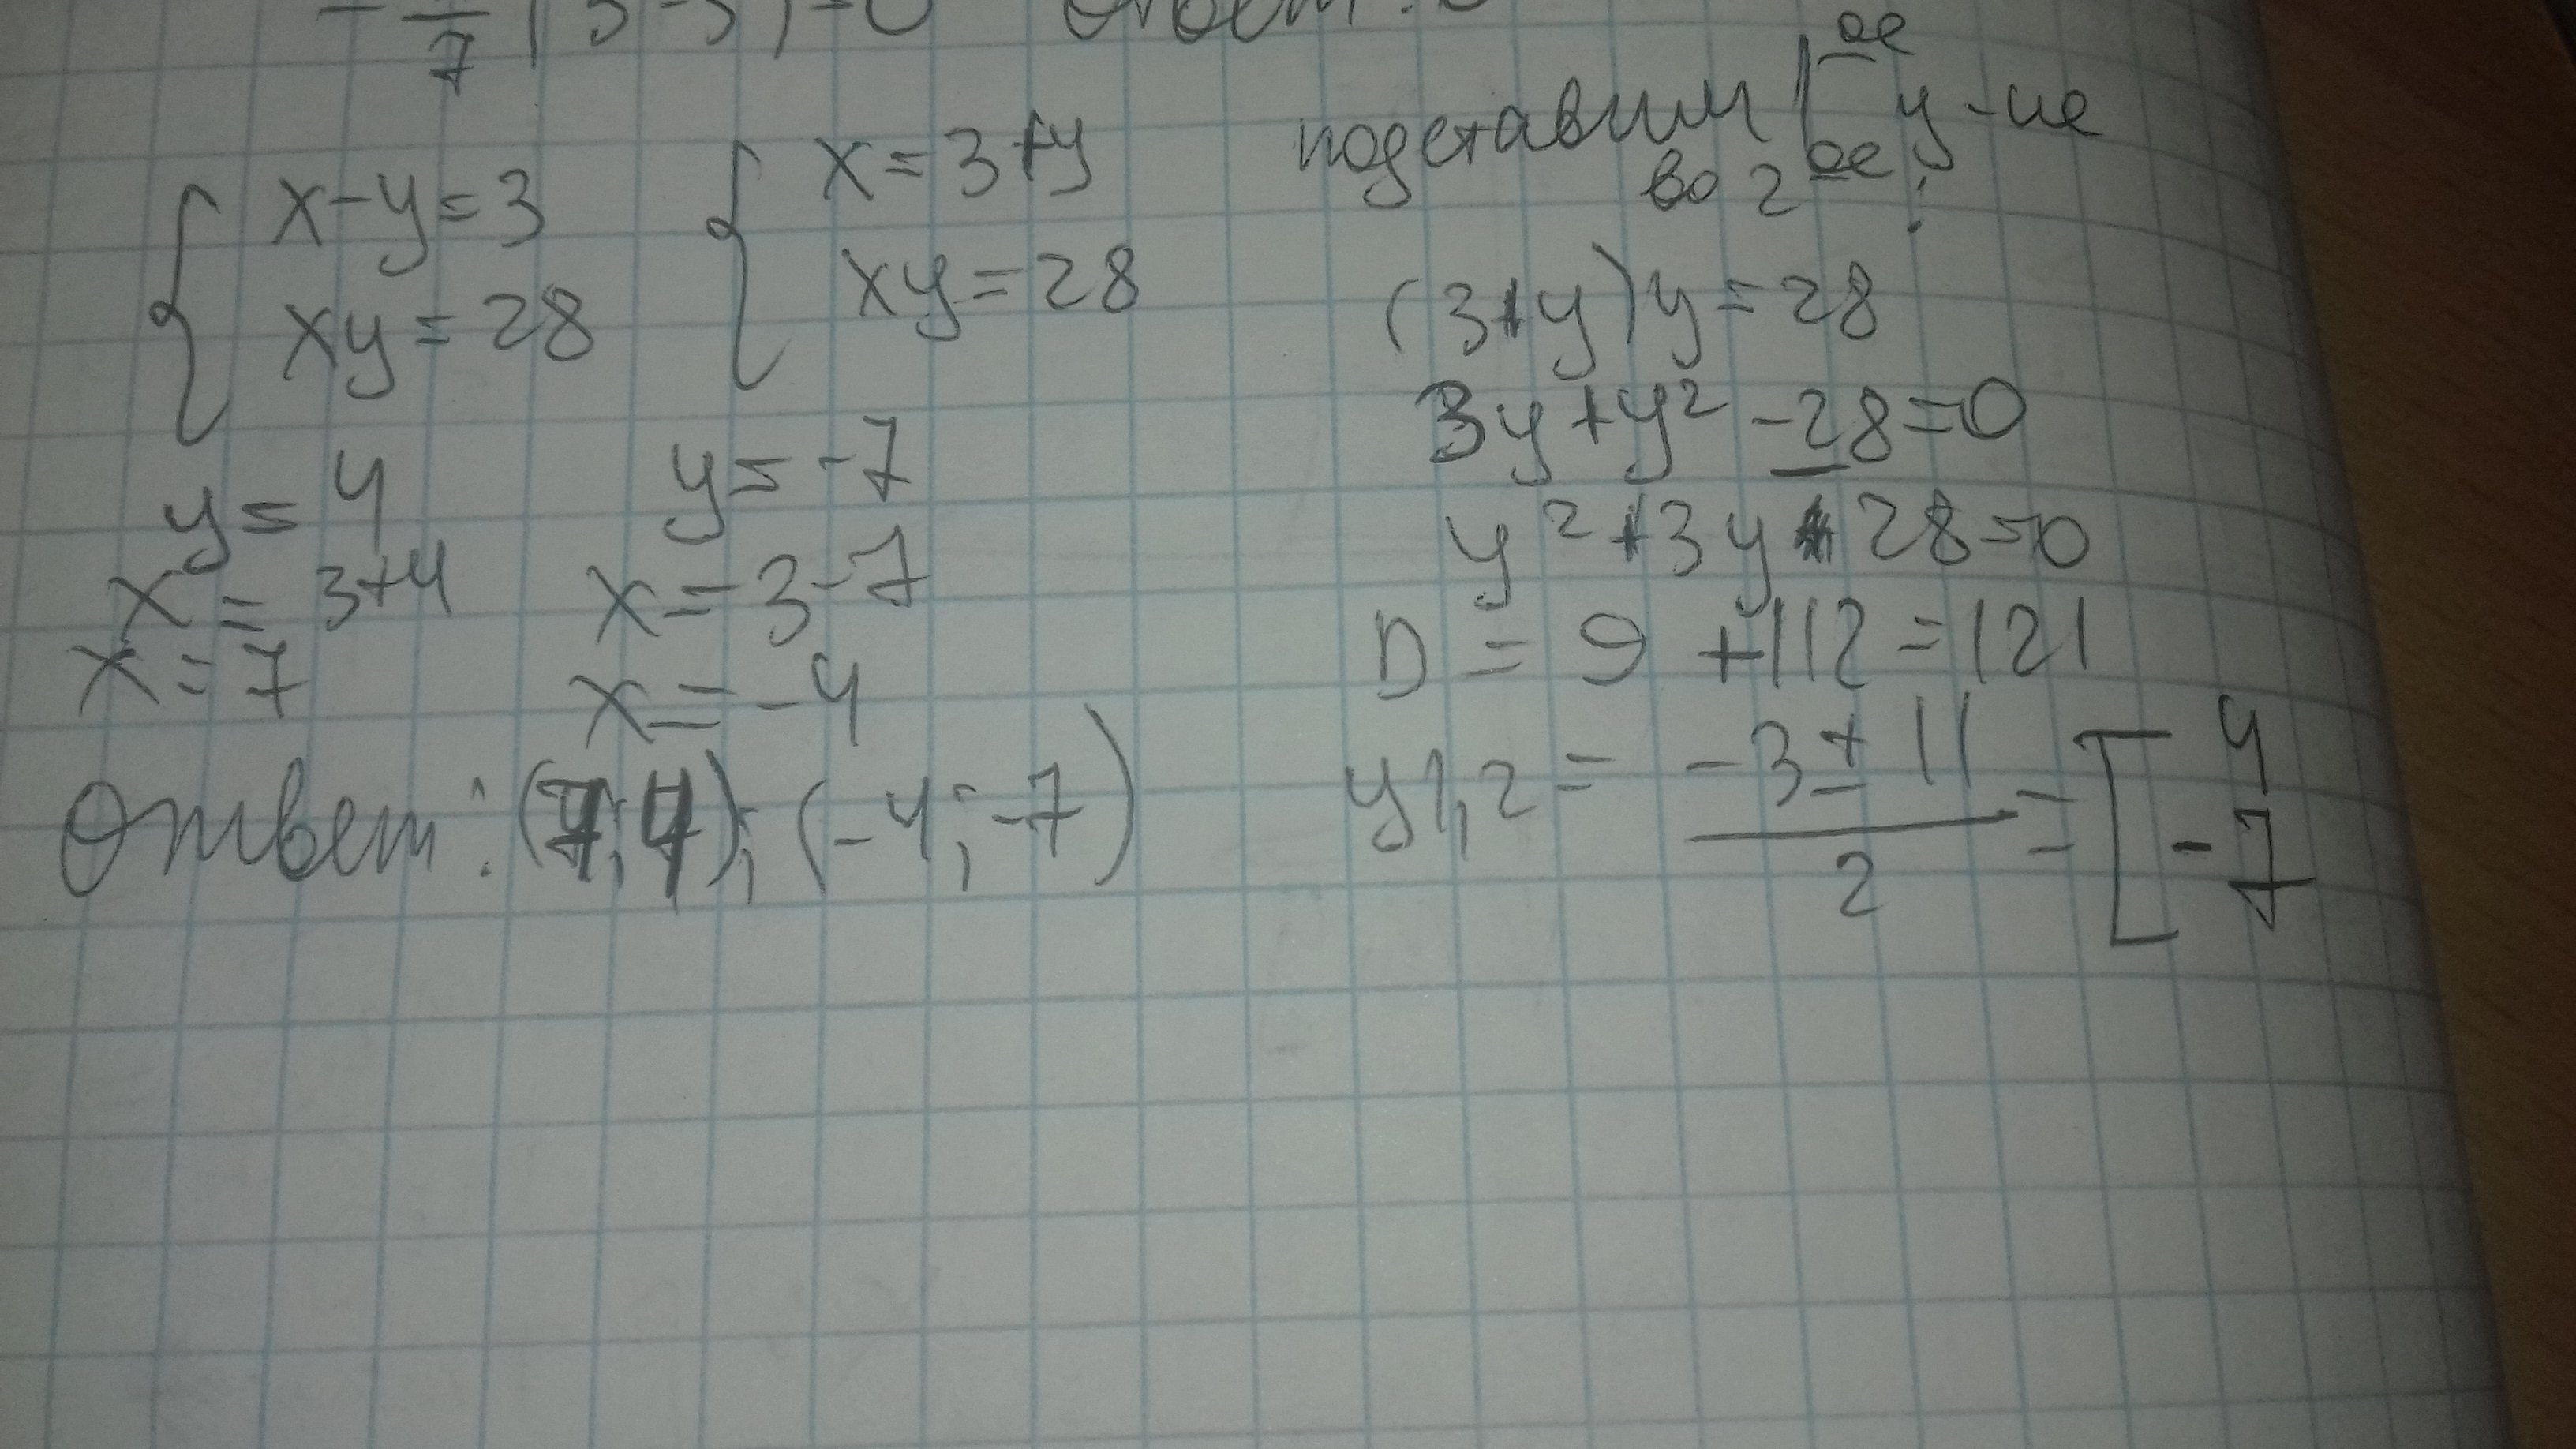 { x-y=3
xy=28
{ x=3+y
xy=28
подставим 1ое у-ие
во 2ое:
(3+y)y=28
3y+y²-28=0
y²+3y-28=0
D=9+112=121
y1,2 = -3±11 / 2 = [ 4
-7
y=4
x=3+4
x=7
y=-7
x=3-7
x=-4
Ответ: (7;4); (-4;-7)